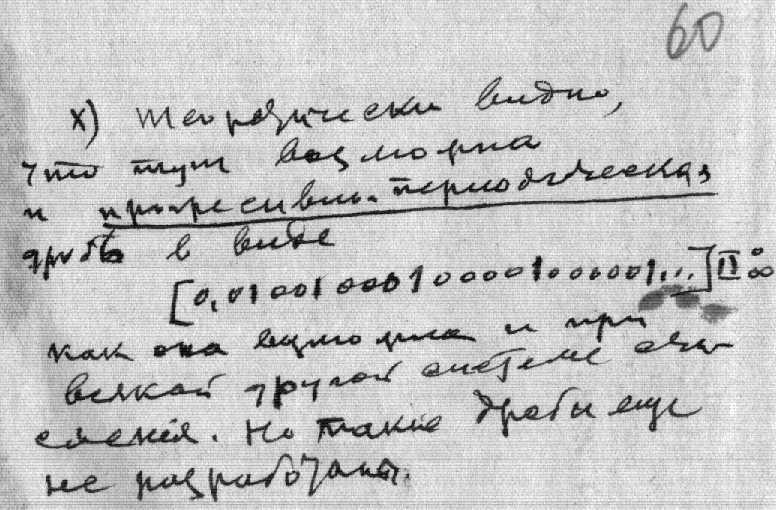 60
х) теоретически видно,
что тут возможна
и прогресивно-периодическая
дробь в виде
[0,01001000100001000001...]II∞
как она возможна и при
всякой другой системе счи-
сления. Но такие дробы еще
не разработаны.